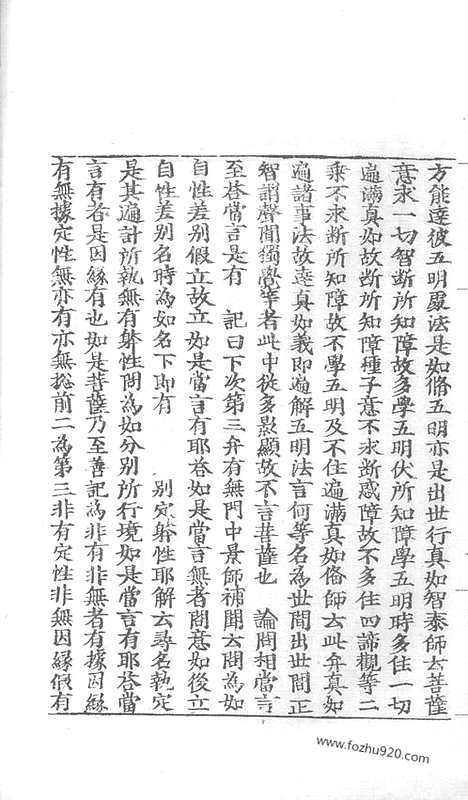 方能達彼五明處法是如脩五明亦是出世行真如智泰師云菩薩
意求一切智斷所知障故多學五明伏所知障學五明時多住一切
遍滿真如故斷所知障種子意不求斷惑障故不多住四諦觀等二
乘不求斷所知障故不學五明及不住遍滿真如脩師云此弁真如
遍諸事法故達真如義即遍解五明法言何等名為世間出世間正
智謂聲聞獨覺等者此中從多影顯故不言菩薩也　論問相當言
至答當言是有　記曰下次第三弁有無門中景師補闕云問為如
自性差别假立故立如是當言有耶答如是當言無者問意如後立
自性差别名時為如名下即有　　　别定躰性耶解云尋名執定
是其遍計所執無有躰性問為如分别所行境如是當言有耶答當
言有者是因緣有也如是菩薩乃至善記為非有非無者有據因緣
有無據定性無亦有亦無揔前二為第三非有定性非無因緣假有
www.fozhu920.com